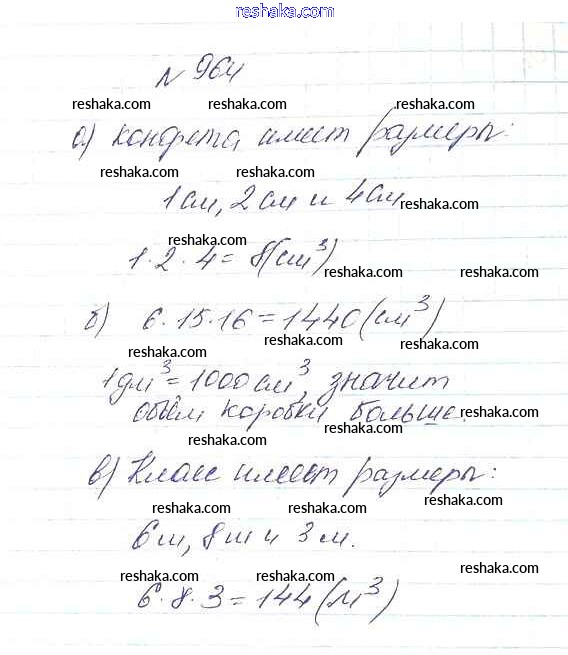 reshaka.com
№ 964
reshaka.com reshaka.com reshaka.com
а) конфета имеет размеры:
reshaka.com reshaka.com
1 см, 2 см и 4 см
reshaka.com
reshaka.com
1·2·4=8(см³)
reshaka.com reshaka.com
б) 6·15·16=1440(см³)
reshaka.com reshaka.com
1дм³=1000см³, значит
объём коробки больше.
reshaka.com
reshaka.com
в) Класс имеет размеры:
reshaka.com reshaka.com
6м, 8м и 3м.
reshaka.com
reshaka.com reshaka.com
6·8·3=144(м³)